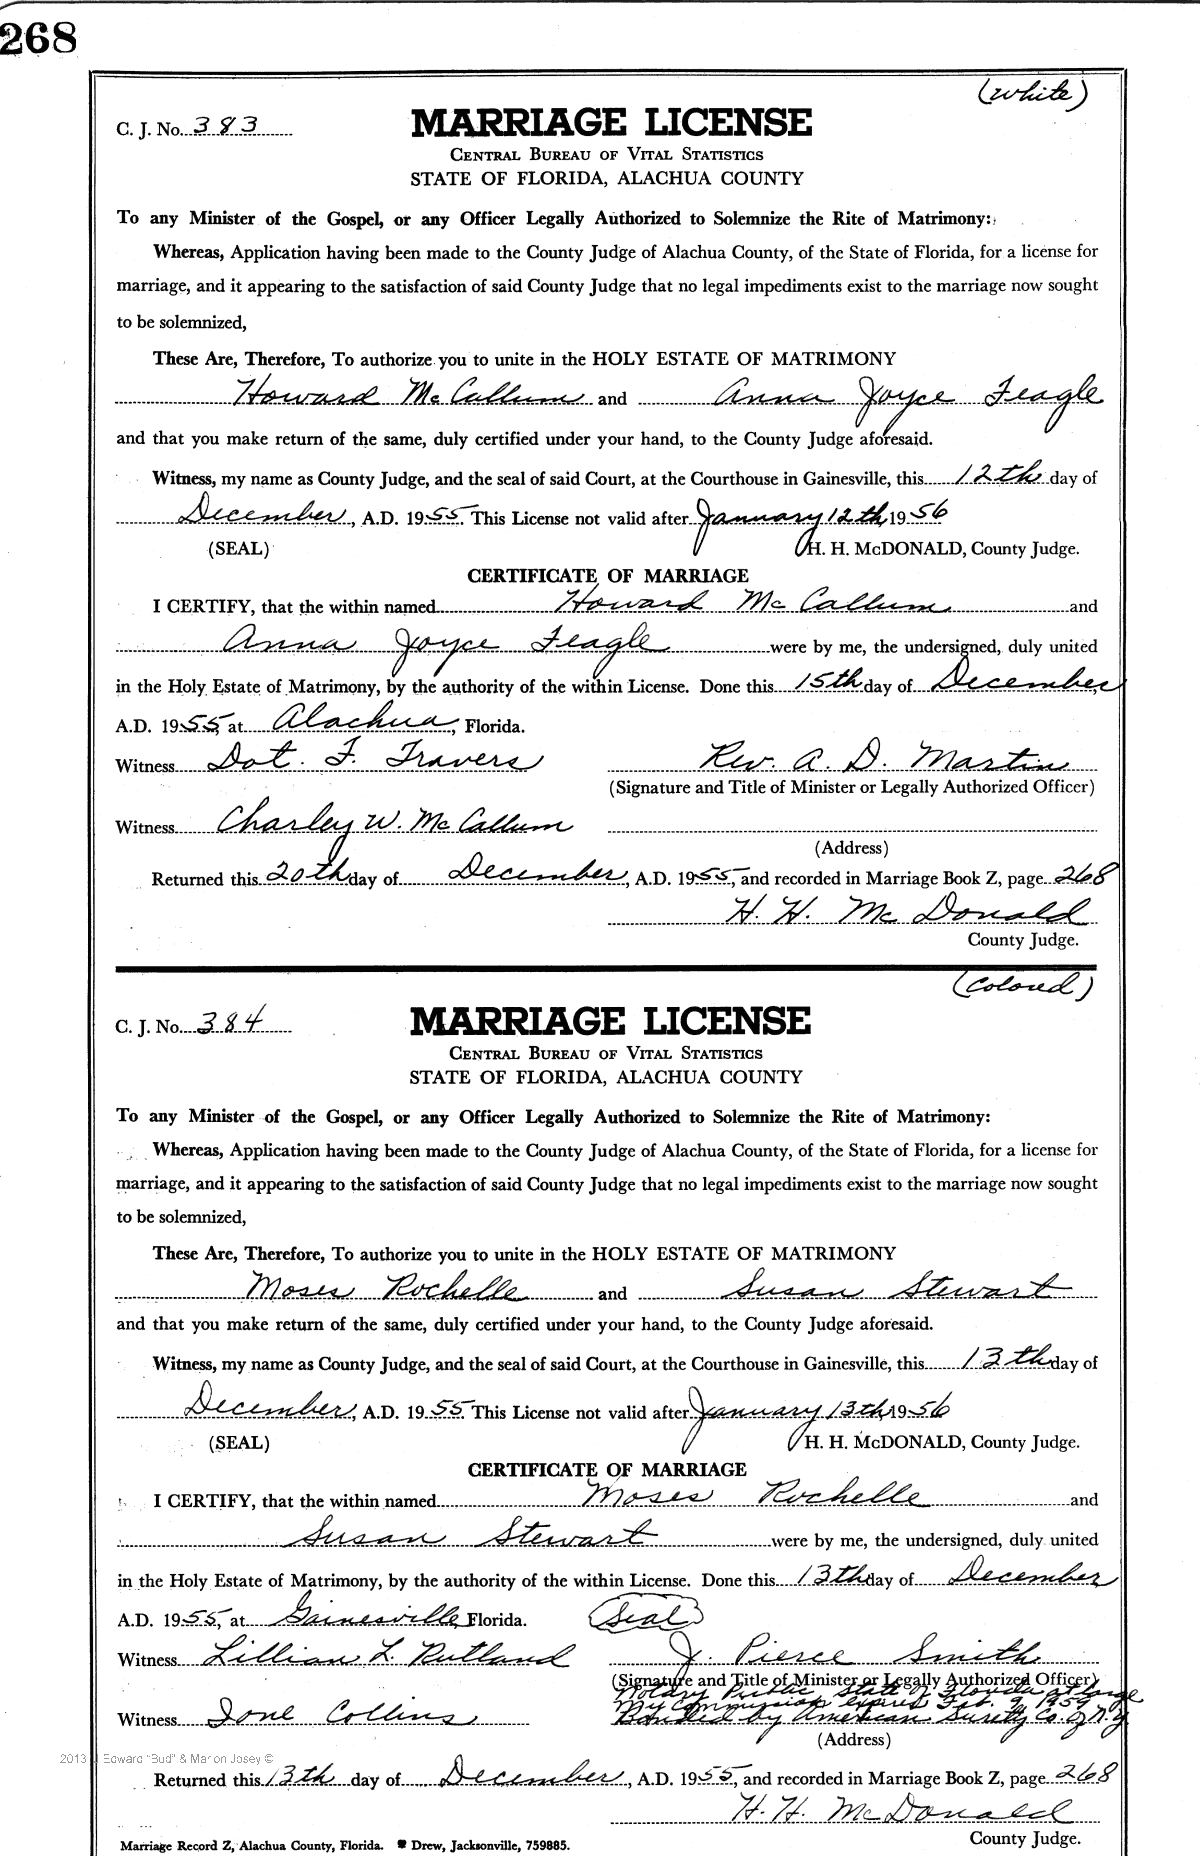 268
(white)
C. J. No. 383
MARRIAGE LICENSE
CENTRAL BUREAU OF VITAL STATISTICS
STATE OF FLORIDA, ALACHUA COUNTY
To any Minister of the Gospel, or any Officer Legally Authorized to Solemnize the Rite of Matrimony:
Whereas, Application having been made to the County Judge of Alachua County, of the State of Florida, for a license for
marriage, and it appearing to the satisfaction of said County Judge that no legal impediments exist to the marriage now sought
to be solemnized,
These Are, Therefore, To authorize you to unite in the HOLY ESTATE OF MATRIMONY
Howard McCallum and Anna Joyce Feagle
and that you make return of the same, duly certified under your hand, to the County Judge aforesaid.
Witness, my name as County Judge, and the seal of said Court, at the Courthouse in Gainesville, this 12th day of
December, A.D. 1955. This License not valid after January 12th, 1956
(SEAL) H. H. McDONALD, County Judge.
CERTIFICATE OF MARRIAGE
I CERTIFY, that the within named Howard McCallum and
Anna Joyce Feagle were by me, the undersigned, duly united
in the Holy Estate of Matrimony, by the authority of the within License. Done this 15th day of December,
A.D. 1955, at Alachua, Florida.
Witness Dot. F. Travers Rev. A. D. Martin
(Signature and Title of Minister or Legally Authorized Officer)
Witness Charley W. McCallum
(Address)
Returned this 20th day of December, A.D. 1955, and recorded in Marriage Book Z, page 268
H. H. McDonald
County Judge.
(Colored)
C. J. No. 384
MARRIAGE LICENSE
CENTRAL BUREAU OF VITAL STATISTICS
STATE OF FLORIDA, ALACHUA COUNTY
To any Minister of the Gospel, or any Officer Legally Authorized to Solemnize the Rite of Matrimony:
Whereas, Application having been made to the County Judge of Alachua County, of the State of Florida, for a license for
marriage, and it appearing to the satisfaction of said County Judge that no legal impediments exist to the marriage now sought
to be solemnized,
These Are, Therefore, To authorize you to unite in the HOLY ESTATE OF MATRIMONY
Moses Rochelle and Susan Stewart
and that you make return of the same, duly certified under your hand, to the County Judge aforesaid.
Witness, my name as County Judge, and the seal of said Court, at the Courthouse in Gainesville, this 13th day of
December, A.D. 1955. This License not valid after January 13th, 1956
(SEAL) H. H. McDONALD, County Judge.
CERTIFICATE OF MARRIAGE
I CERTIFY, that the within named Moses Rochelle and
Susan Stewart were by me, the undersigned, duly united
in the Holy Estate of Matrimony, by the authority of the within License. Done this 13th day of December
A.D. 1955, at Gainesville, Florida. (Seal)
Witness Lillian L. Rutland J. Pierce Smith
(Signature and Title of Minister or Legally Authorized Officer)
Notary Public State of Florida at large
My Commission expires Feb. 9, 1959
Witness Ione Collins Bonded by American Surety Co. of N.Y.
(Address)
2013 Edward "Bud" & Marion Josey ©
Returned this 13th day of December, A.D. 1955, and recorded in Marriage Book Z, page 268
H. H. McDonald
County Judge.
Marriage Record Z, Alachua County, Florida. Drew, Jacksonville, 759885.